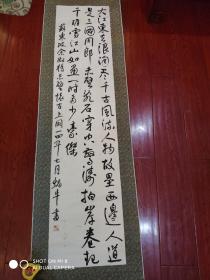 大江东去浪淘尽千古风流人物故垒西边人道
是三国周郎赤壁乱石穿空惊涛拍岸卷起
千堆雪江山如画一时多少豪杰
苏东坡念奴娇赤壁怀古二〇一四年七月